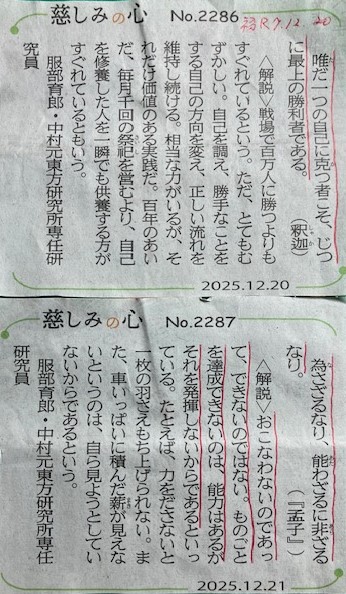 慈しみの心 No.2286
福R7.12.20
唯だ一つの自己に克つ者こそ、じつ
に最上の勝利者である。
(釈迦)
しゃか
〈解説〉戦場で百万人に勝つよりも
すぐれているという。ただ、とてもむ
ずかしい。自己を調え、勝手なことを
する自己の方向を変え、正しい流れを
維持し続ける。相当な力がいるが、そ
れだけ価値のある実践だ。百年のあい
だ、毎月千回の祭祀を営むより、自己
を修養した人を一瞬でも供養する方が
すぐれているともいう。
服部育郎・中村元東方研究所専任研
究員
2025.12.20
慈しみの心 No.2287
為さざるなり、能わざるに非ざる
なり。
(『孟子』)
〈解説〉おこなわないのであっ
て、できないのではない。ものごと
を達成できないのは、能力はあるが
それを発揮しないからであるといっ
ている。たとえば、力をださないと
一枚の羽さえもち上げられない。ま
た、車いっぱいに積んだ薪が見えな
いというのは、自ら見ようとしてい
ないからであるという。
服部育郎・中村元東方研究所専任
研究員
2025.12.21